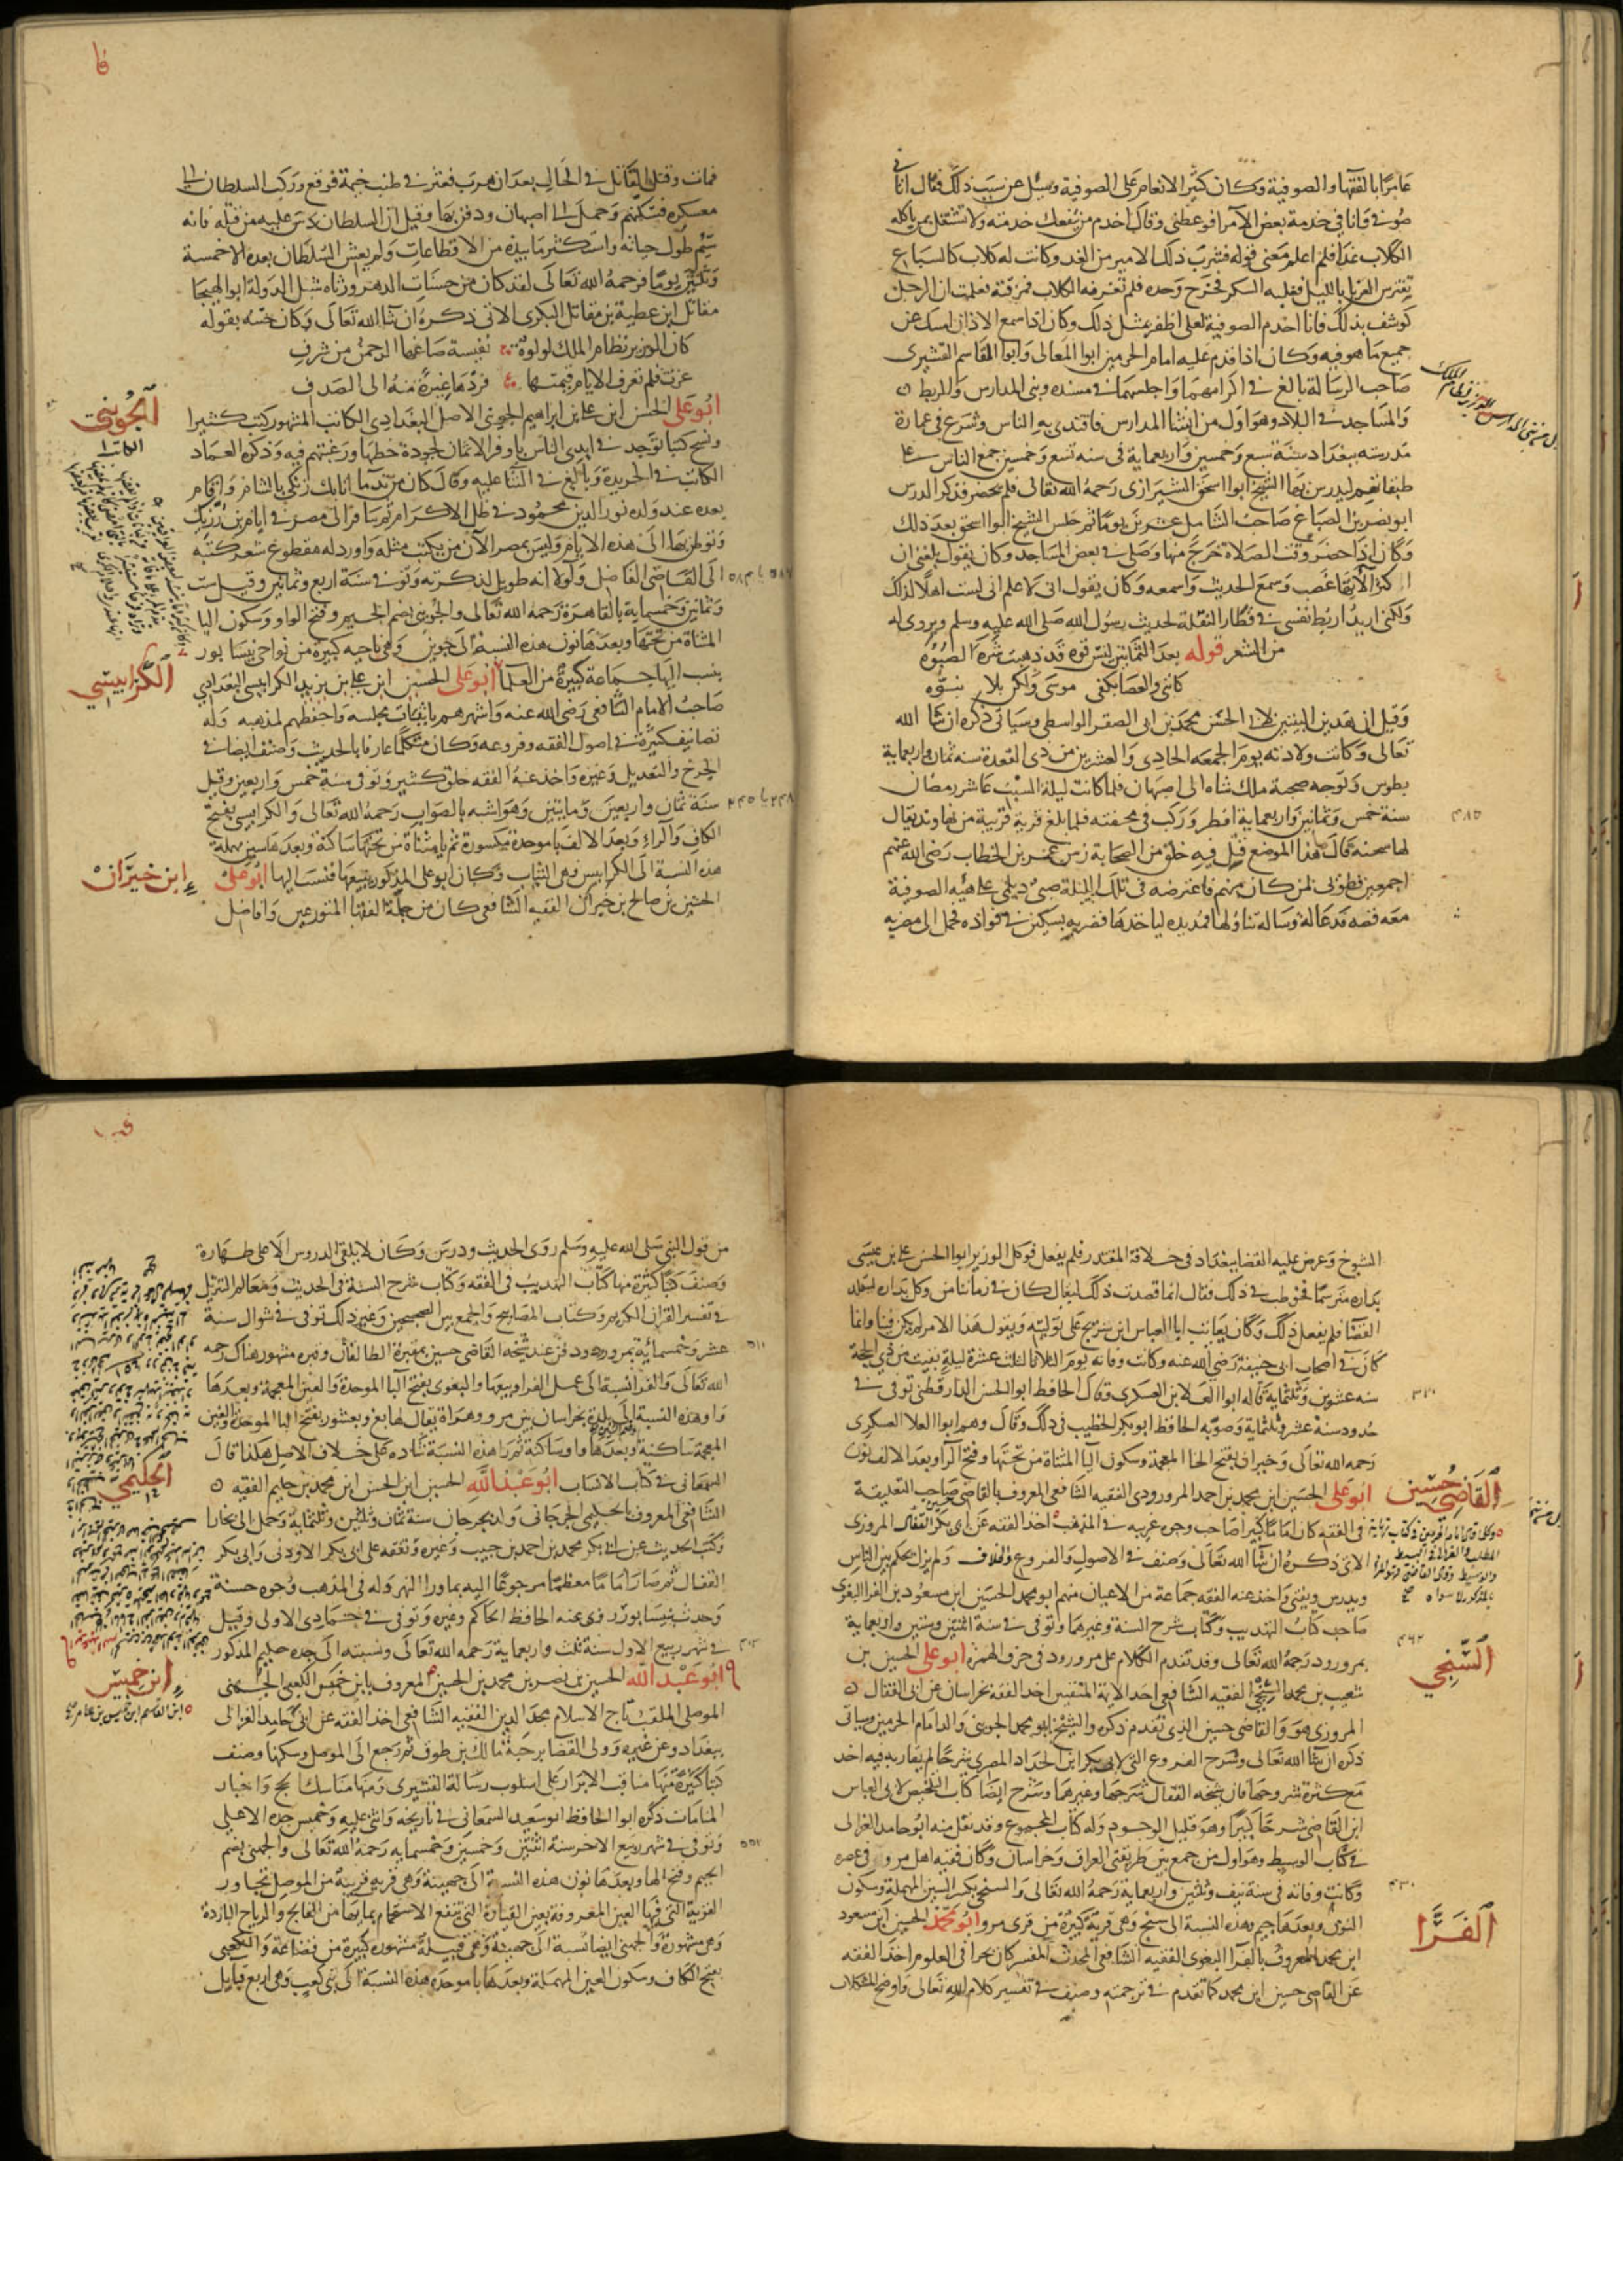 عامرا بالفقها والصوفية وكان كثير الانعام على الصوفية وسيل عن سبب ذلك فقال اتاني
صوفي وانا في خدمة بعض الامرا فوعظني وقال اخدم من ينفعك خدمته ولا تشتغل بمن ياكله
الكلاب غدا فلم اعلم معنى قوله فشرب ذلك الامير من الغد وكانت له كلاب كالسباع
تفترس الغربا بالليل فغلبه السكر فخرج وحده فلم تعرفه الكلاب فمزقته فعلمت ان الرجل
كوشف بذلك فانا اخدم الصوفية لعلي اظفر بمثل ذلك وكان اذا سمع الاذان امسك عن
جميع ما هو فيه وكان اذا قدم عليه امام الحرمين ابوا المعالي وابوا القاسم القشيري
صاحب الرسالة بالغ في اكرامهما واجلسهما في مسنده وبنى المدارس والربط
والمساجد في البلاد وهو اول من انشا المدارس فاقتدى به الناس وشرع في عمارة
مدرسته ببغداد سنة سبع وخمسين واربعماية في سنه تسع وخمسين جمع الناس على
طبقاتهم ليدرس بها الشيخ ابوا اسحق الشيرازى رحمه الله تعالى فلم يحضر فذكر الدرس
ابو نصر بن الصباغ صاحب الشامل عشرين يوما ثم جلس الشيخ ابوا اسحق بعد ذلك
وكان اذا حضر وقت الصلاة خرج منها وصلى في بعض المساجد وكان يقول بلغني ان
اكثر الآتها غصب وسمع الحديث واسمعه وكان يقول اني لاعلم اني لست اهلا لذلك
ولكني اريد اربط نفسي في قطار النقلة لحديث رسول الله صلى الله عليه وسلم ويروى له
من الشعر قوله بعد الثمانين ليس قوه قد ذهبت شره الصبوه
كانني والعصا بكفي موسى ولكن بلا نبوه
وقيل ان هذين البيتين لابي الحسن محمد بن ابي الصقر الواسطي وسياتي ذكره ان شا الله
تعالى وكانت ولادته يوم الجمعه الحادي والعشرين من ذي القعدة سنه ثمان واربعماية
بطوس وتوجه صحبة ملك شاه الى اصبهان فلما كانت ليلة السبت عاشر رمضان
سنة خمس وثمانين واربعماية افطر وركب في محفته فلما بلغ قرية قريبة من نهاوند يقال
لها سحنه قال هذا الموضع قتل فيه خلق من الصحابة زمن عمر بن الخطاب رضي الله عنهم
اجمعين فطوبى لمن كان منهم فاعترضه في تلك الليلة صبي ديلمي على هيه الصوفية
معه قصه فدعا له وساله تناولها فمد يده لياخذها فضربه بسكين في فواده فحمل الى مضربه
٤٨٥
فمات وقتل القاتل في الحال بعد ان هرب فعثر في طنب خيمة فوقع وركب السلطان الى
معسكره فسكنهم وحمل الى اصبهان ودفن بها وقيل ان السلطان دس عليه من قتله فانه
سيم طول حياته واستكثر ما بيده من الاقطاعات ولم يعش السلطان بعده الا خمسة
وثلاثين يوما فرحمه الله تعالى لقد كان من حسنات الدهر ورثاه شبل الدولة ابو الهيجا
مقاتل ابن عطية بن مقاتل البكري الاتي ذكره ان شا الله تعالى وكان ختنه بقوله
كان الوزير نظام الملك لولوة نفيسة صاغها الرحمن من شرف
عزت فلم تعرف الايام قيمتها فردها غيرة منه الى الصدف
الجويني
الكاتب
ابو على الحسن ابن علي بن ابراهيم الجويني الاصل البغدادي الكاتب المشهور كتب كثيرا
ونسخ كتبا توجد في ايدي الناس باوفر الاثمان لجودة خطها ورغبتهم فيه وذكره العماد
الكاتب في الخريدة وبالغ في الثنا عليه وقال كان من ندما اتابك زنكي بالشام واقام
بعده عند ولده نور الدين محمود في ظل الاكرام ثم سافر الى مصر في ايام بن رزيك
وتوطن بها الى هذه الايام وليس بمصر الآن من يكتب مثله واورد له مقطوع شعر كتبه
الى القاضي الفاضل ولولا انه طويل لذكرته وتوفي في سنة اربع وثمانين وقيل ست
وثمانين وخمسماية بالقاهرة رحمه الله تعالى والجويني بضم الجيم وفتح الواو وسكون اليا
المثناة من تحتها وبعدها نون هذه النسبة الى جوين وهي ناحيه كبيرة من نواحي نيسابور
الكرابيسي
ينسب اليها جماعة كبيرة من العلما ابو على الحسين ابن علي بن يزيد الكرابيسي البغدادي
صاحب الامام الشافعي رضي الله عنه واشهرهم باتيان مجلسه واحفظهم لمذهبه وله
تصانيف كثيرة في اصول الفقه وفروعه وكان متكلما عارفا بالحديث وصنف ايضا في
الجرح والتعديل وغيره واخذ عنه الفقه خلق كثير وتوفي سنة خمس واربعين وقيل
سنة ثمان واربعين ومايتين وهو اشبه بالصواب رحمه الله تعالى والكرابيسي بفتح
الكاف والراء وبعد الالف با موحدة مكسورة ثم يا مثناة من تحتها ساكنة وبعدها سين مهملة
ابن خيران
هذه النسبة الى الكرابيس وهي الثياب وكان ابو على المذكور يبيعها فنسب اليها ابو على
الحسين بن صالح بن خيران الفقيه الشافعي كان من جملة الفقها المتورعين وافاضل
الشيوخ وعرض عليه القضا ببغداد في خلافة المقتدر فلم يفعل فوكل الوزير ابوا الحسن علي بن عيسى
بداره مترسما فخوطب في ذلك فقال انما قصدت ذلك ليقال كان في زماننا من وكل بداره ليتقلد
القضا فلم يفعل ذلك وكان يعاتب ابا العباس ابن سريج على توليته ويقول هذا الامر لم يكن فينا وانما
كان في اصحاب ابي حنيفة رضي الله عنه وكانت وفاته يوم الثلاثا لثلث عشرة ليلة بقيت من ذي الحجة
سنه عشرين وثلثماية قاله ابوا العلا بن العسكري وقال الحافظ ابوا الحسن الدارقطني توفى في
حدود سنة عشر وثلثماية وصوبه الحافظ ابو بكر الخطيب في ذلك وقال وهم ابوا العلا العسكري
رحمه الله تعالى وخيران بفتح الخا المعجمة وسكون اليا المثناة من تحتها وفتح الرا وبعد الالف نون
القاضي حسين
ابو على الحسين ابن محمد بن احمد المروروذي الفقيه الشافعي المعروف بالقاضي صاحب التعليقة
في الفقه كان اماما كبيرا صاحب وجوه غريبه في المذهب اخذ الفقه عن ابي بكر القفال المروزي
الاتي ذكره ان شا الله تعالى وصنف في الاصول والفروع والخلاف ولم يزل يحكم بين الناس
ويدرس ويفتي واخذ عنه الفقه جماعة من الاعيان منهم ابو محمد الحسين ابن مسعود بن الفرا البغوي
صاحب كتاب التهذيب وكتاب شرح السنة وغيرهما وتوفى في سنة اثنتين وستين واربعماية
السنجي
بمرورود رحمه الله تعالى وقد تقدم الكلام على مرورود في حرف الهمزة ابو على الحسين بن
شعيب بن محمد السنجي الفقيه الشافعي احد الايمة المتقنين اخذ الفقه بخراسان عن ابي القفال
المروزي هو والقاضي حسين الذي تقدم ذكره والشيخ ابو محمد الجويني والد امام الحرمين وسياتي
ذكره ان شا الله تعالى وشرح الفروع التي لابي بكر ابن الحداد المصري شرحا لم يقاربه فيه احد
مع كثرة شروحها فان شيخه القفال شرحها وغيرهما وشرح ايضا كتاب التلخيص لابي العباس
ابن القاص شرحا كبيرا وهو قليل الوجود وله كتاب المجموع وقد نقل منه ابو حامد الغزالي
في كتاب الوسيط وهو اول من جمع بين طريقتي العراق وخراسان وكان فقيه اهل مرو في عصره
وكانت وفاته في سنة نيف وثلثين واربعماية رحمه الله تعالى والسنجي بكسر السين المهملة وسكون
الفرا
النون وبعدها جيم وهذه النسبة الى سنج وهي قرية كبيرة من قرى مرو ابو محمد الحسين ابن مسعود
ابن محمد المعروف بالفرا البغوي الفقيه الشافعي المحدث المفسر كان بحرا في العلوم اخذ الفقه
عن القاضي حسين ابن محمد كما تقدم في ترجمته وصنف في تفسير كلام الله تعالى واوضح المشكلات
من قول النبي صلى الله عليه وسلم روى الحديث ودرس وكان لا يلقي الدروس الا على طهارة
وصنف كتبا كثيرة منها كتاب التهذيب في الفقه وكتاب شرح السنة في الحديث ومعالم التنزيل
في تفسير القران الكريم وكتاب المصابيح والجمع بين الصحيحين وغير ذلك توفى في شوال سنة
عشر وخمسمائة بمرورود ودفن عند شيخه القاضي حسين بمقبرة الطالقان وقبره مشهور هناك رحمه
الله تعالى والفرا نسبة الى عمل الفرا وبيعها والبغوي بفتح البا الموحدة والغين المعجمة وبعدها
واو هذه النسبة الى بلدة بخراسان بين مرو وهراة يقال لها بغ وبغشور بفتح البا الموحدة والغين
المعجمة ساكنة وبعدها واو ساكنة ثم را هذه النسبة شاده على خلاف الاصل هكذا قال
الحليمي
السمعاني في كتاب الانساب ابو عبد الله الحسين ابن الحسن ابن محمد بن حليم الفقيه
الشافعي المعروف بالحليمي الجرجاني ولد بجرجان سنة ثمان وثلثين وثلثماية وحمل الى بخارا
وكتب الحديث عن ابي بكر محمد بن احمد بن حبيب وغيره وتفقه على ابي بكر الاودني وابي بكر
القفال ثم صار اماما معظما مرجوعا اليه بما ورا النهر وله في المذهب وجوه حسنة
وحدث بنيسابور روى عنه الحافظ الحاكم وغيره وتوفي في جمادى الاولى وقيل
في شهر ربيع الاول سنة ثلث واربعماية رحمه الله تعالى ونسبته الى جده حليم المذكور
ابن خميس
ابو عبد الله الحسين بن نصر بن محمد بن الحسين المعروف بابن خميس الكعبي الجهني
الموصلي الملقب تاج الاسلام مجد الدين الفقيه الشافعي اخذ الفقه عن ابي حامد الغزالي
ببغداد وعن غيره وولى القضا برحبة مالك بن طوق ثم رجع الى الموصل وسكنها وصنف
كتبا كثيرة منها مناقب الابرار على اسلوب رسالة القشيري ومنها مناسك الحج واخبار
المنامات ذكره ابوا الحافظ ابو سعيد السمعاني في تاريخه واثنى عليه وخميس جده الاعلى
وتوفي في شهر ربيع الاخر سنة اثنتين وخمسين وخمسمايه رحمه الله تعالى والجهني بضم
الجيم وفتح الها وبعدها نون هذه النسبة الى جهينة وهي قرية قريبة من الموصل تجاور
القرية التي فيها العين المعروفة بعين القيارة التي تنفع الاستحمام بمايها من الفالج والرياح الباردة
وهي مشهورة والجهني ايضا نسبة الى جهينة وهي قبيلة مشهوره كبيرة من قضاعة والكعبي
بفتح الكاف وسكون العين المهملة وبعدها با موحدة هذه النسبة الى بني كعب وهي اربع قبايل